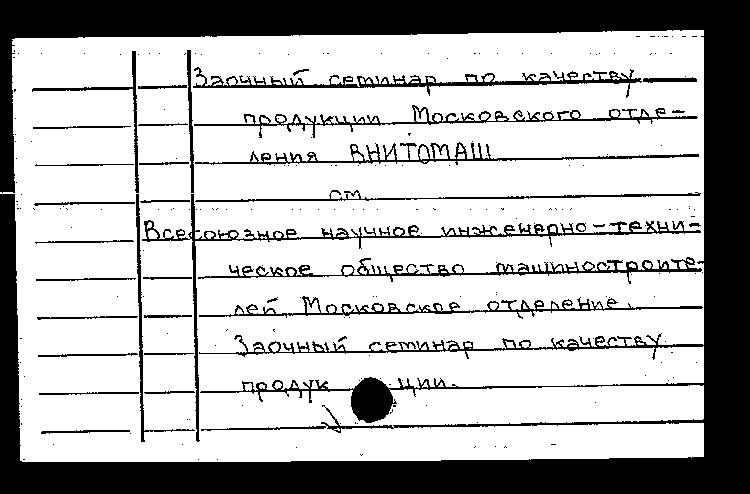 Заочный семинар по качеству
продукции Московского отде-
ления ВНИТОМАШ
см.
Всесоюзное научное инженерно-техни-
ческое общество машиностроите-
лей. Московское отделение.
Заочный семинар по качеству
продукции.